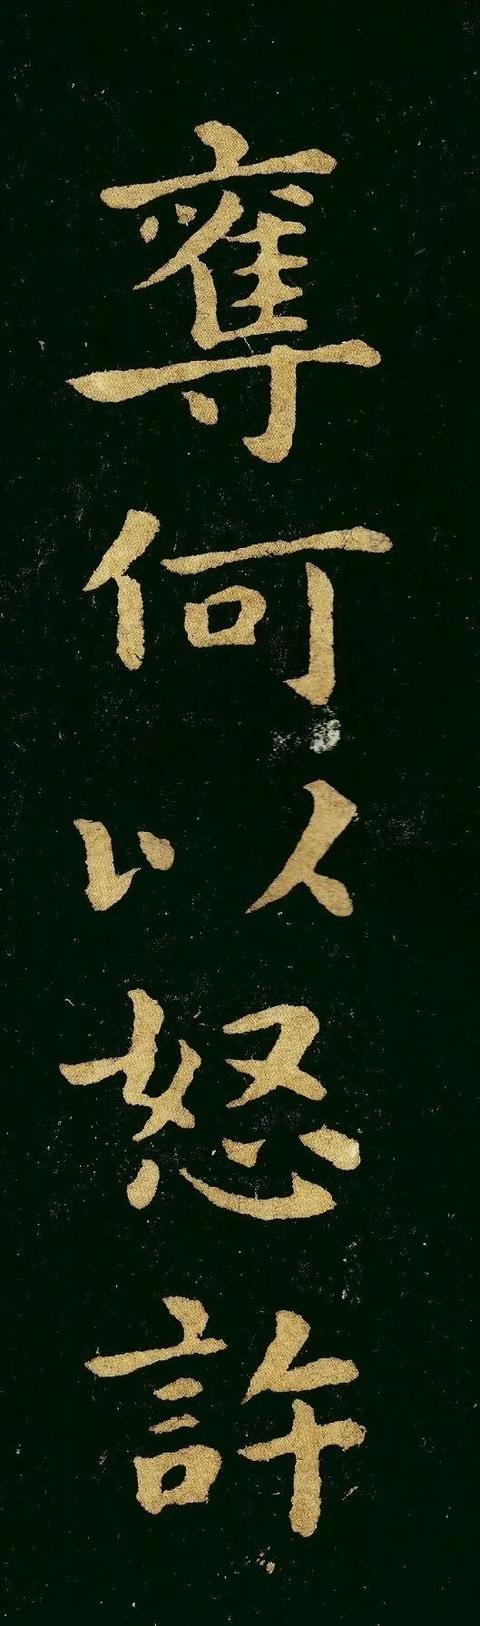 奪何以怒許